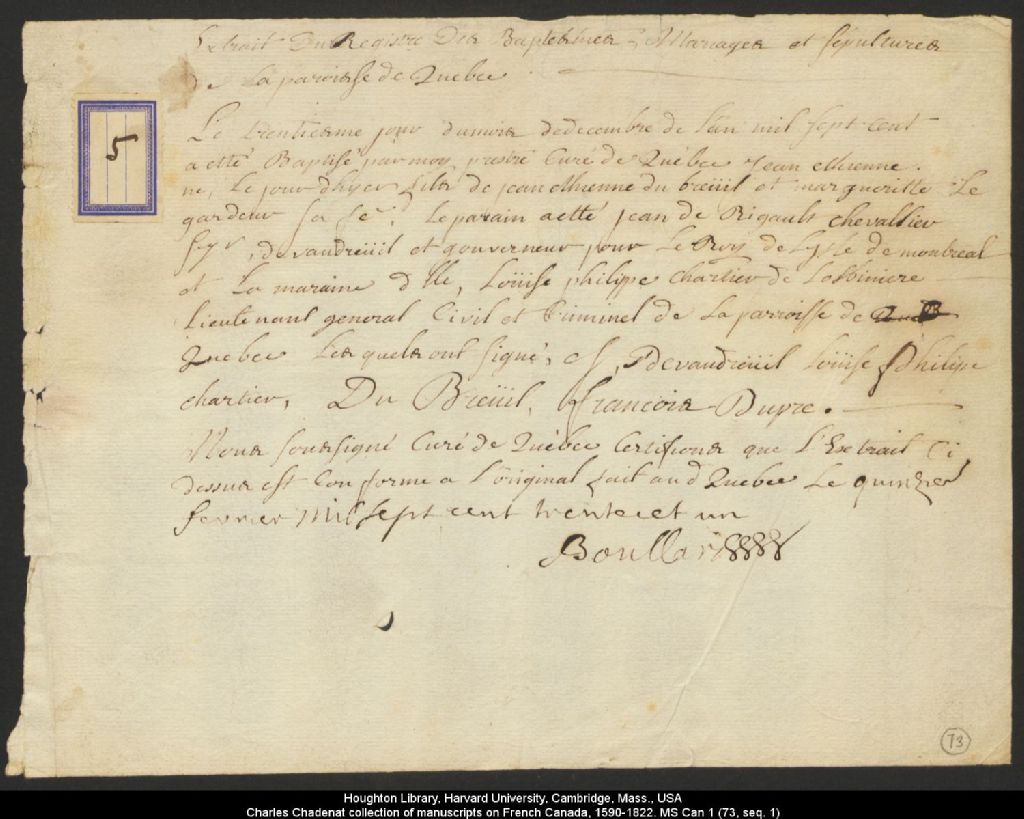 Extrait Du Registre Des Baptesmes, Mariages et sépultures
De La paroisse de Quebec
5
Le trentiesme jour dumois dedecembre de l'an mil sept cent
a etté Baptisé parmoy, prestre Curé de Québec Jean Etienne
né, Le jour d'hyer fils de jean Etienne du breüil et marguerite Le
gardeur sa fe. Le parain aetté jean de Rigault chevallier
sgr, devaudreüil et gouverneur pour Le Roy de Lysle de montreal
et La maraine dlle, Loüise philippe Chartier de Lotbiniere
Lieutenant general Civil et Criminel de La parroisse de
Quebec Lesquels ont signé, Devaudreüil Loüise Philipe
chartier, Du Breüil, francois Dupre.
Nous soussigné Curé de Québec Certifions que L'Extrait Ci
dessus est Conforme a L'original fait aud Quebec Le quinze
fevrier Mil sept cent trente et un
Boullard
73
Houghton Library, Harvard University, Cambridge, Mass., USA
Charles Chadenat collection of manuscripts on French Canada, 1590-1822. MS Can 1 (73, seq. 1)